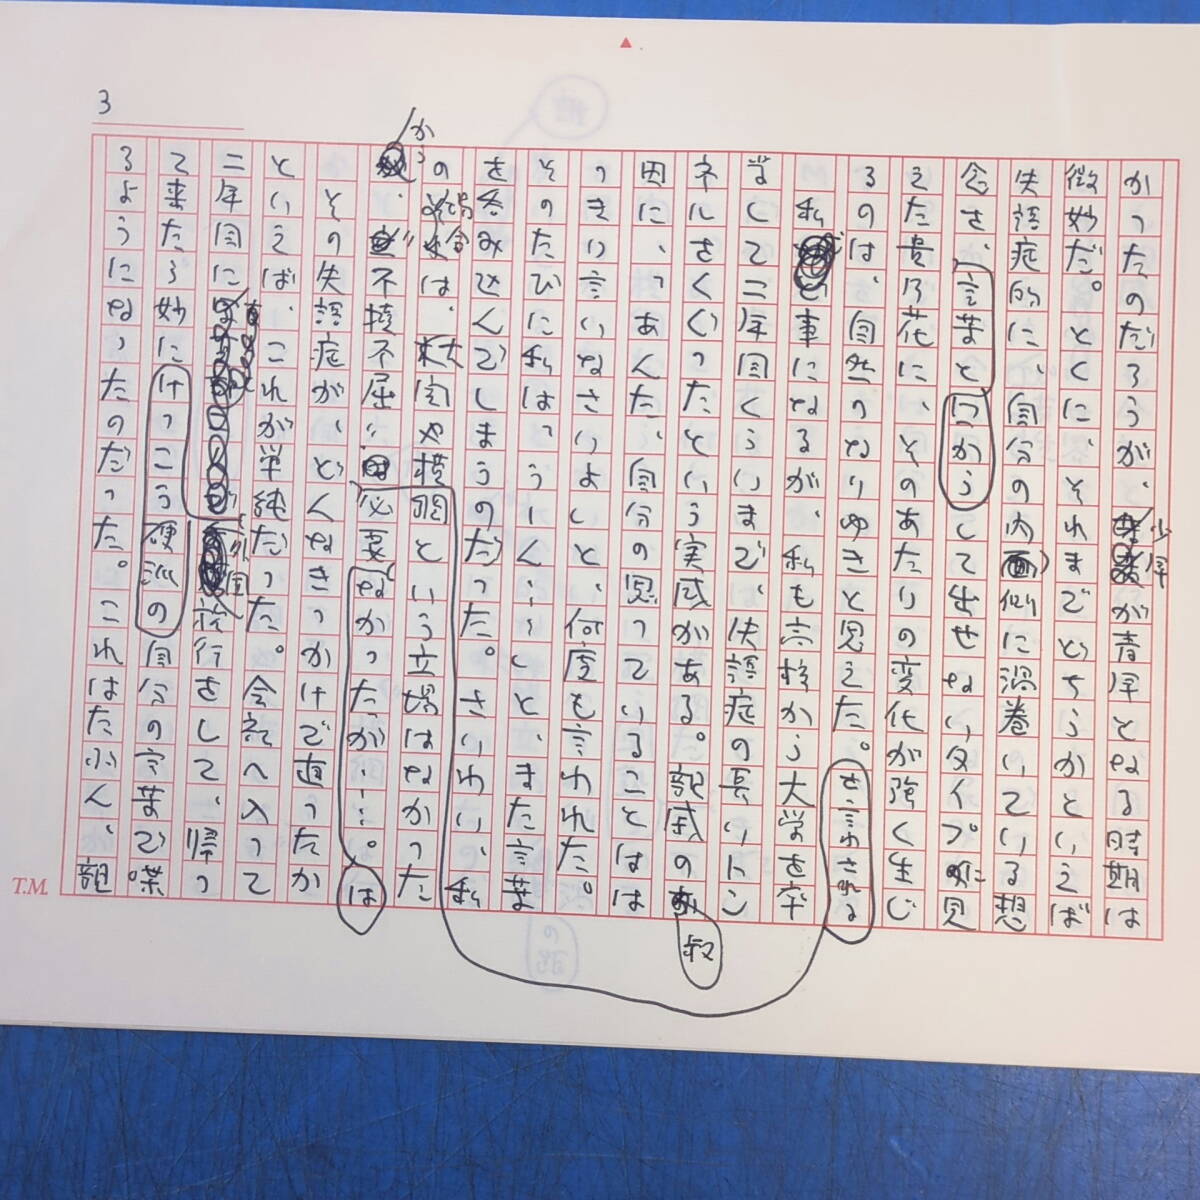 3
かったのだろうが、少年が青年となる時期は
微妙だ。とくに、それまでどちらかといえば
失語症的に、自分の内側に渦巻いている想
念を、言葉と向かうして出せないタイプに見
えた貴乃花に、そのあたりの変化が強く生じ
るのは、自然のなりゆきと思えた。
私事になるが、私も高校から大学を卒
業して二年間くらいまで、失語症の長いトン
ネルをくぐったという実感がある。親戚の叔
因に、「あんた、自分の思っていることはは
っきり言いなさいよ」と、何度も言われた。
そのたびに私は、「うーん……」と、また言葉
を呑みこんでしまうのだった。さいわい、私
の場合は、大関や横綱という立場はなかった
から、不撓不屈
必要なかったが……。は
を言わされる
その失語症が、どんなきっかけで直ったか
といえば、これが単純だった。会社へ入って
二年目に外国旅行をして、帰っ
て来たら妙にけっこう硬派の自分の言葉で喋
るようになったのだった。これはたぶん、說
T.M.